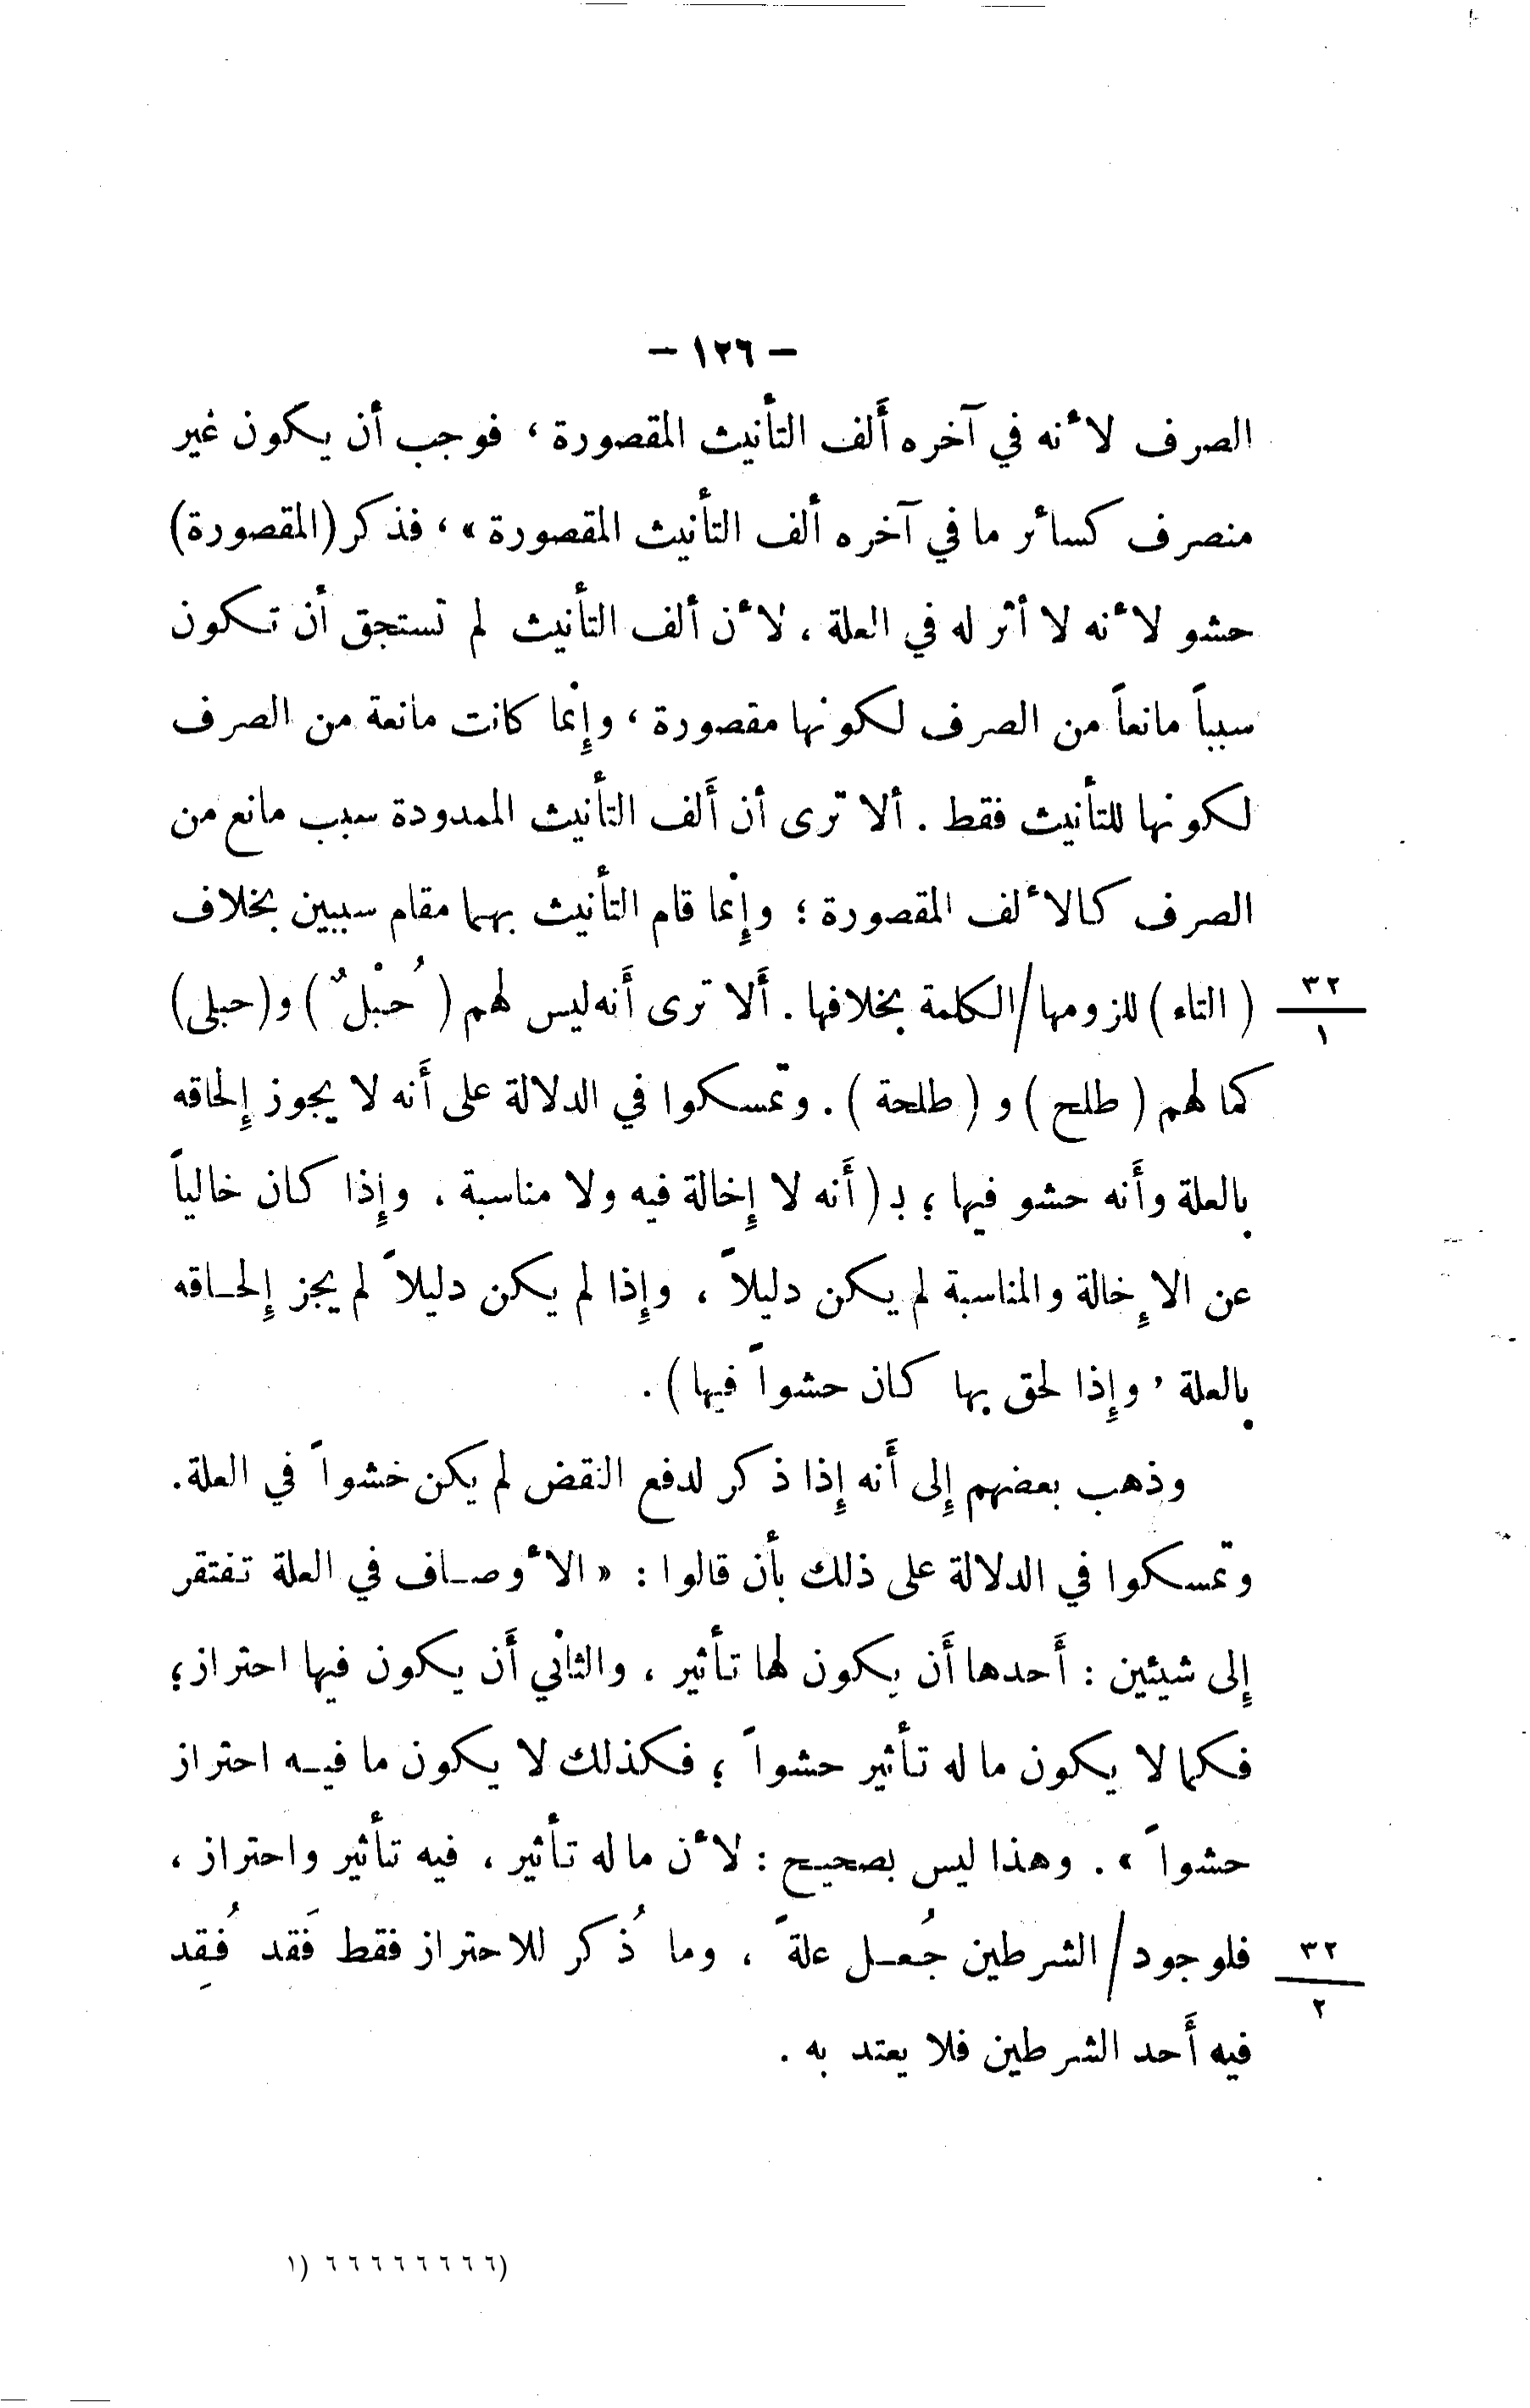 - ١٢٦ -
الصرف لأنه في آخره أَلف التأنيث المقصورة ، فوجب أن يكون غير
منصرف كسائر ما في آخره ألف التأنيث المقصورة » ، فذكر (المقصورة)
حشو لأنه لا أثر له في العلة ، لأن ألف التأنيث لم تستحق أن تكون
سبباً مانعاً من الصرف لكونها مقصورة ، وإنما كانت مانعة من الصرف
لكونها للتأنيث فقط . ألا ترى أن أَلف التأنيث الممدودة سبب مانع من
الصرف كالألف المقصورة ؛ وإنما قام التأنيث بهما مقام سببين بخلاف
٣٢
١
( التاء ) للزومها / الكلمة بخلافها . أَلا ترى أَنه ليس لهم ( حُبْلٌ ) و (حبلى)
كما لهم ( طلح ) و ( طلحة ) . وتمسكوا في الدلالة على أَنه لا يجوز إِلحاقه
بالعلة وأَنه حشو فيها ؛ بـ ( أَنه لا إِخالة فيه ولا مناسبة ، وإِذا كان خالياً
عن الإِخالة والمناسبة لم يكن دليلاً ، وإِذا لم يكن دليلاً لم يجز إِلحـاقه
بالعلة ، وإِذا لحق بها كان حشواً فيها ) .
وذهب بعضهم إِلى أَنه إِذا ذكر لدفع النقض لم يكن خشواً في العلة .
وتمسكوا في الدلالة على ذلك بأن قالوا : « الأوصـاف في العلة تفتقر
إِلى شيئين : أَحدها أَن يكون لها تأثير ، والثاني أَن يكون فيها احتراز ؛
فكما لا يكون ما له تأثير حشواً ؛ فكذلك لا يكون ما فيـه احتراز
حشواً » . وهذا ليس بصحيح : لأن ما له تأثير ، فيه تأثير واحتراز ،
٣٢
٢
فلوجود / الشرطين جُعـل علةً ، وما ذُكر للاحتراز فقط فَقد فُقِد
فيه أَحد الشرطين فلا يعتد به .